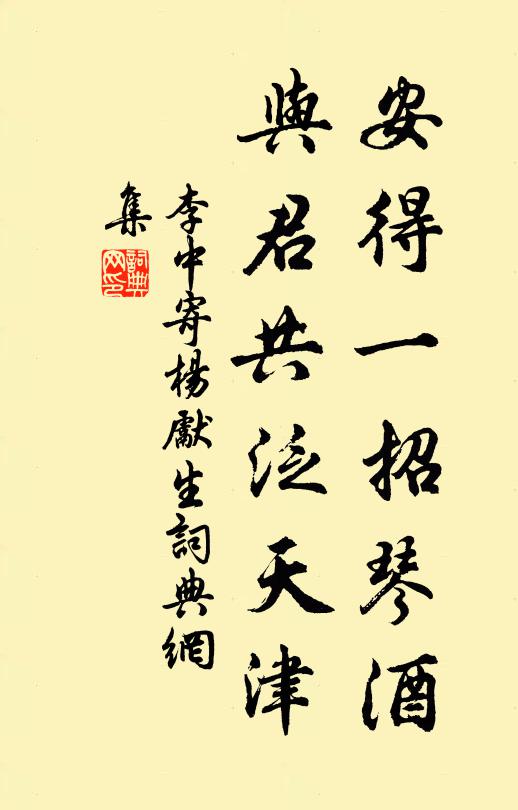 安得一招琴酒
與君共泛天津
李中寄楊獻生詞典網
集
詞典
网印